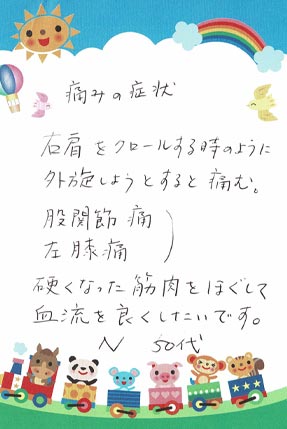 痛みの症状
右肩をクロールする時のように
外旋しようとすると痛む。
股関節痛
左膝痛
硬くなった筋肉をほぐして
血流を良くしたいです。
N 50代